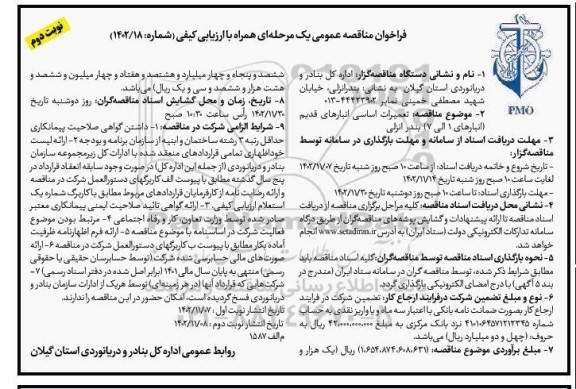 نوبت دوم
فراخوان مناقصه عمومی یک مرحله‌ای همراه با ارزیابی کیفی (شماره: ۱۴۰۲/۱۸)
PMO
۱- نام و نشانی دستگاه مناقصه‌گزار: اداره کل بنادر و
دریانوردی استان گیلان به نشانی: بندرانزلی، خیابان
شهید مصطفی خمینی نمابر ۴۴۴۴۳۹۰۲-۰۱۳
۲- موضوع مناقصه: تعمیرات اساسی انبارهای قدیم
(انبارهای ۱ الی ۷) بندر انزلی
۳- مهلت دریافت اسناد از سامانه و مهلت بارگذاری در سامانه توسط
مناقصه‌گزار:
- تاریخ شروع و خاتمه دریافت اسناد: از ساعت ۱۰ صبح روز شنبه تاریخ ۱۴۰۲/۱۱/۰۷
لغایت ساعت ۱۰ صبح روز شنبه تاریخ ۱۴۰۲/۱۱/۱۴
- مهلت بارگذاری اسناد: تا ساعت ۱۰ صبح روز دوشنبه تاریخ ۱۴۰۲/۱۱/۳۰
۴- نشانی محل دریافت اسناد مناقصه: کلیه مراحل برگزاری مناقصه از دریافت
اسناد مناقصه تا ارائه پیشنهادات و گشایش پوشه‌های مناقصه‌گران از طریق درگاه
سامانه تدارکات الکترونیکی دولت (ستاد ایران) به آدرس www.setadiran.ir انجام
خواهد شد.
۵- نحوه بارگذاری اسناد مناقصه توسط مناقصه‌گران: کلیه اسناد مناقصه باید
مطابق شرایط ذکر شده، توسط مناقصه گران در سامانه ستاد ایران (مندرج در
بند ۵ آگهی) با درج امضای الکترونیکی بارگذاری گردد.
۶- نوع و مبلغ تضمین شرکت در فرایند ارجاع کار: تضمین شرکت در فرایند
ارجاع کار بصورت ضمانت نامه بانکی با اعتبار سه ماه و یا واریز نقدی به حساب
شماره نزد بانک مرکزی به مبلغ ۴۲.۰۰۰.۰۰۰.۰۰۰ ریال به
حروف: (چهل و دو میلیارد ریال) می‌باشد.
۷- مبلغ برآوردی موضوع مناقصه: (۱.۶۵۴.۸۷۴.۶۰۸.۶۳۱) ریال (یک هزار و
ششصد و پنجاه و چهار میلیارد و هشتصد و هفتاد و چهار میلیون و ششصد و
هشت هزار و ششصد و سی و یک ریال) می‌باشد.
۸- تاریخ، زمان و محل گشایش اسناد مناقصه‌گران: روز دوشنبه تاریخ
۱۴۰۲/۱۱/۳۰ رأس ساعت ۱۰:۳۰ صبح
۹- شرایط الزامی شرکت در مناقصه: ۱- داشتن گواهی صلاحیت پیمانکاری
حداقل رتبه ۳ رشته ساختمان و ابنیه از سازمان برنامه و بودجه ۲- ارائه لیست
خوداظهاری تمامی قراردادهای منعقد شده با ادارات کل زیرمجموعه سازمان
بنادر و دریانوردی (از جمله این اداره کل) در صورت وجود سابقه انعقاد قرارداد در
پنج سال گذشته مطابق با پیوست الف کاربرگهای دستورالعمل شرکت در مناقصه
و ارائه رضایت نامه از کارفرمایان قراردادهای مربوط مطابق با کاربرگ شماره یک
استعلام ارزیابی کیفی. ۳- ارائه گواهی تائید صلاحیت ایمنی پیمانکاری معتبر
صادر شده توسط وزارت تعاون، کار و رفاه اجتماعی ۴- مرتبط بودن موضوع
فعالیت شرکت در اساسنامه با موضوع مناقصه ۵- ارائه فرم اظهارنامه ظرفیت
آماده بکار مطابق با پیوست ب کاربرگهای دستورالعمل شرکت در مناقصه ۶- ارائه
صورت‌های مالی حسابرسی شده شرکت (توسط حسابرسان حقیقی یا حقوقی
رسمی) منتهی به پایان سال مالی ۱۴۰۱ (برابر اصل شده در دفتر اسناد رسمی) ۷-
شرکت‌هایی که قرارداد آنها (در هر زمینه‌ای) توسط هریک از ادارات سازمان بنادر و
دریانوردی فسخ گردیده است، امکان حضور در این مناقصه را ندارند.
تاریخ انتشار نوبت اول: ۱۴۰۲/۱۱/۰۷
تاریخ انتشار نوبت دوم: ۱۴۰۲/۱۱/۰۸
م الف ۱۵۸۷
روابط عمومی اداره کل بنادر و دریانوردی استان گیلان